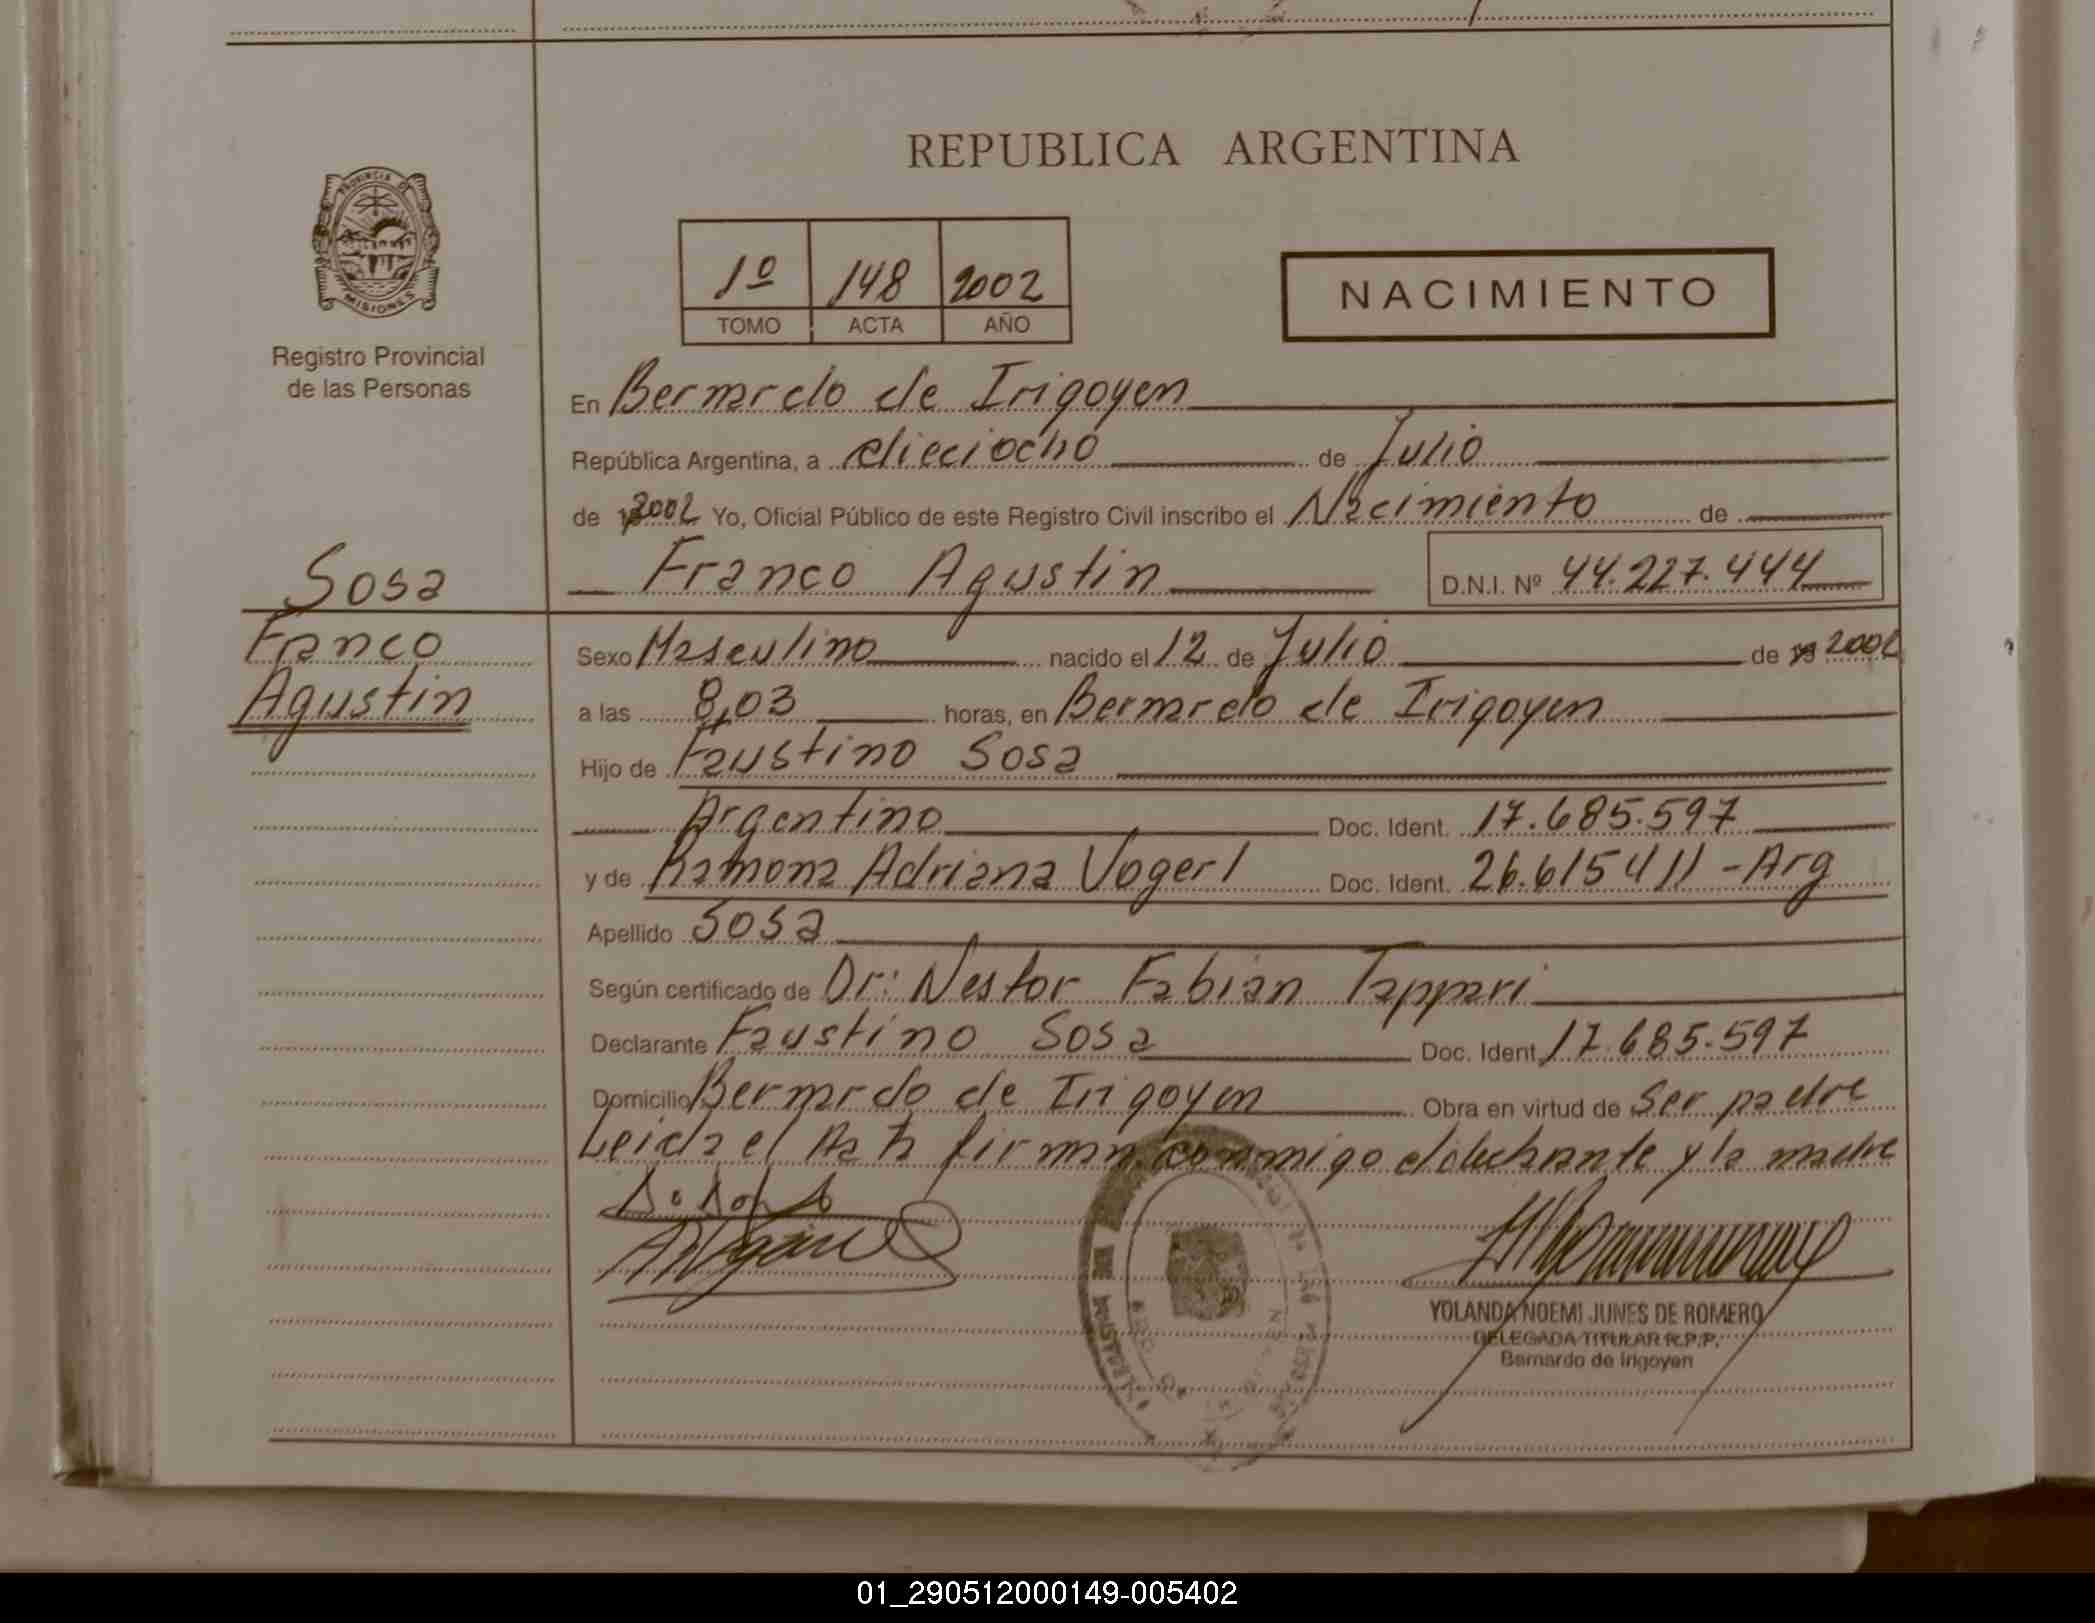 REPUBLICA ARGENTINA
PROVINCIA DE
MISIONES
Registro Provincial
de las Personas
1º 148 2002
TOMO ACTA AÑO
NACIMIENTO
En Bernardo de Irigoyen
República Argentina, a dieciocho de Julio
de 2002 Yo, Oficial Público de este Registro Civil inscribo el Nacimiento de
Franco Agustin D.N.I. Nº 44.227.444
Sosa
Franco
Agustin
Sexo Masculino nacido el 12 de Julio de 19 2002
a las 8,03 horas, en Bernardo de Irigoyen
Hijo de Faustino Sosa
Argentino Doc. Ident. 17.685.597
y de Ramona Adriana Vogerl Doc. Ident. 26.615411 - Arg
Apellido Sosa
Según certificado de Dr: Nestor Fabian Tappari
Declarante Faustino Sosa Doc. Ident. 17.685.597
Domicilio Bernardo de Irigoyen Obra en virtud de Ser padre
Leida el Acta firman conmigo el declarante y la madre
YOLANDA NOEMI JUNES DE ROMERO
DELEGADA TITULAR R.P.P.
Bernardo de Irigoyen
01_290512000149-005402